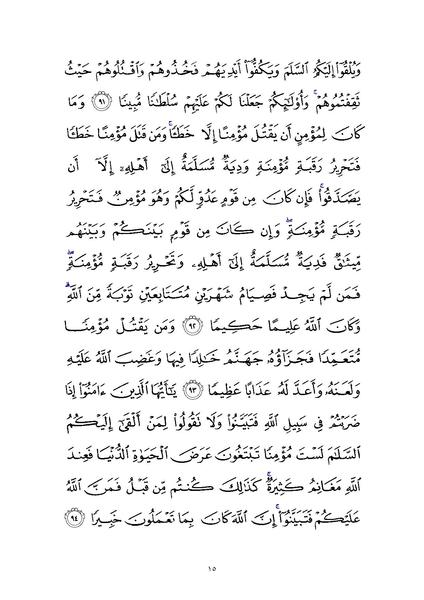 وَيُلْقُوٓا۟ إِلَيْكُمُ ٱلسَّلَمَ وَيَكُفُّوٓا۟ أَيْدِيَهُمْ فَخُذُوهُمْ وَٱقْتُلُوهُمْ حَيْثُ
ثَقِفْتُمُوهُمْ ۚ وَأُو۟لَـٰٓئِكُمْ جَعَلْنَا لَكُمْ عَلَيْهِمْ سُلْطَـٰنًا مُّبِينًا ﴿٩١﴾ وَمَا
كَانَ لِمُؤْمِنٍ أَن يَقْتُلَ مُؤْمِنًا إِلَّا خَطَـًٔا ۚ وَمَن قَتَلَ مُؤْمِنًا خَطَـًٔا
فَتَحْرِيرُ رَقَبَةٍ مُّؤْمِنَةٍ وَدِيَةٌ مُّسَلَّمَةٌ إِلَىٰٓ أَهْلِهِۦٓ إِلَّآ أَن
يَصَّدَّقُوا۟ ۚ فَإِن كَانَ مِن قَوْمٍ عَدُوٍّ لَّكُمْ وَهُوَ مُؤْمِنٌ فَتَحْرِيرُ
رَقَبَةٍ مُّؤْمِنَةٍ ۖ وَإِن كَانَ مِن قَوْمٍۭ بَيْنَكُمْ وَبَيْنَهُم
مِّيثَـٰقٌ فَدِيَةٌ مُّسَلَّمَةٌ إِلَىٰٓ أَهْلِهِۦ وَتَحْرِيرُ رَقَبَةٍ مُّؤْمِنَةٍ ۖ
فَمَن لَّمْ يَجِدْ فَصِيَامُ شَهْرَيْنِ مُتَتَابِعَيْنِ تَوْبَةً مِّنَ ٱللَّهِ ۗ
وَكَانَ ٱللَّهُ عَلِيمًا حَكِيمًا ﴿٩٢﴾ وَمَن يَقْتُلْ مُؤْمِنًا
مُّتَعَمِّدًا فَجَزَآؤُهُۥ جَهَنَّمُ خَـٰلِدًا فِيهَا وَغَضِبَ ٱللَّهُ عَلَيْهِ
وَلَعَنَهُۥ وَأَعَدَّ لَهُۥ عَذَابًا عَظِيمًا ﴿٩٣﴾ يَـٰٓأَيُّهَا ٱلَّذِينَ ءَامَنُوٓا۟ إِذَا
ضَرَبْتُمْ فِى سَبِيلِ ٱللَّهِ فَتَبَيَّنُوا۟ وَلَا تَقُولُوا۟ لِمَنْ أَلْقَىٰٓ إِلَيْكُمُ
ٱلسَّلَـٰمَ لَسْتَ مُؤْمِنًا تَبْتَغُونَ عَرَضَ ٱلْحَيَوٰةِ ٱلدُّنْيَا فَعِندَ
ٱللَّهِ مَغَانِمُ كَثِيرَةٌ ۚ كَذَٰلِكَ كُنتُم مِّن قَبْلُ فَمَنَّ ٱللَّهُ
عَلَيْكُمْ فَتَبَيَّنُوٓا۟ ۚ إِنَّ ٱللَّهَ كَانَ بِمَا تَعْمَلُونَ خَبِيرًا ﴿٩٤﴾
١٥